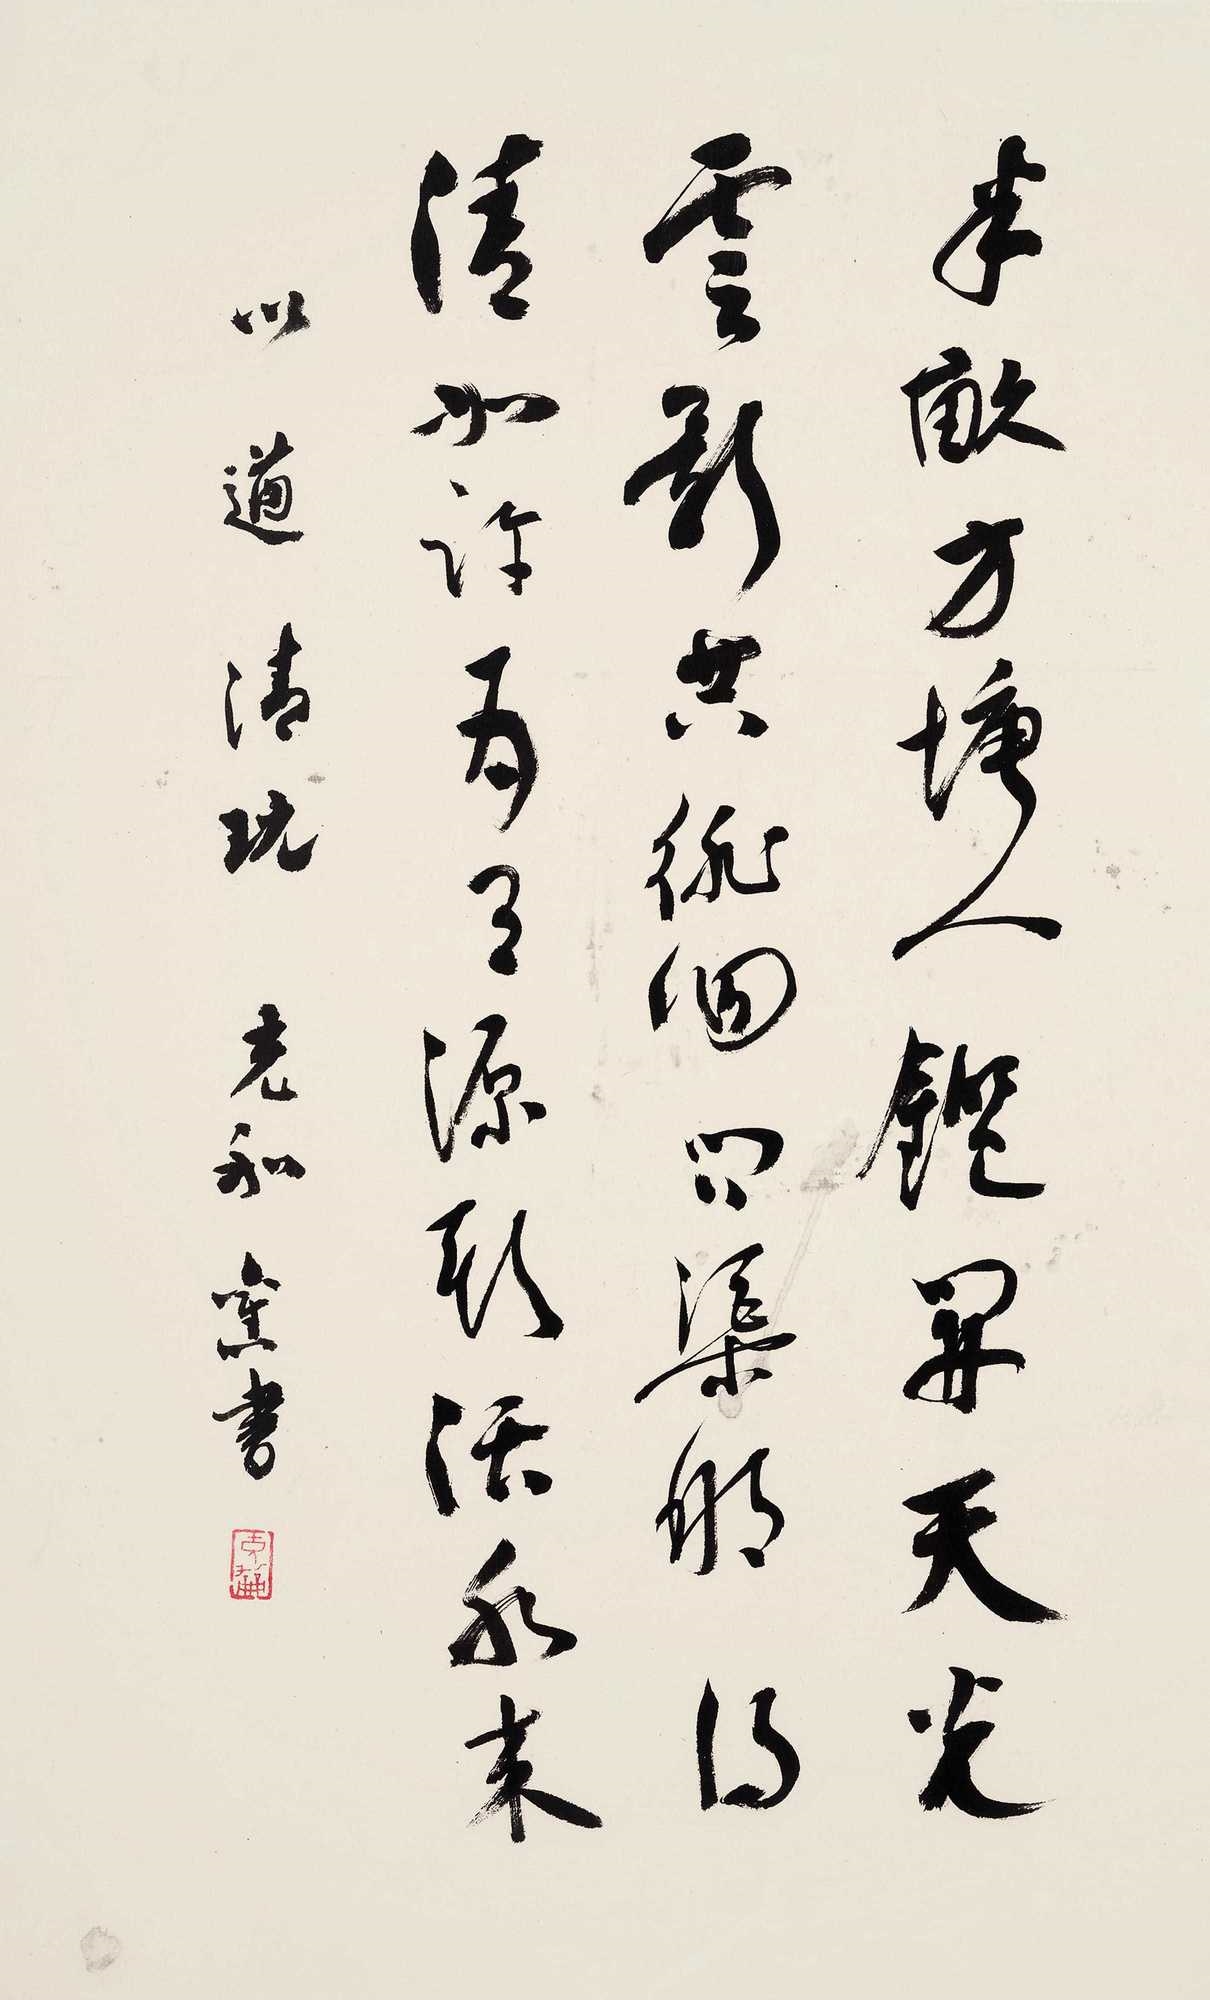 半畝方塘人鑑開天光
雲影共徘徊問渠那得
清如許為有源頭活水來
以 清玩 和 書